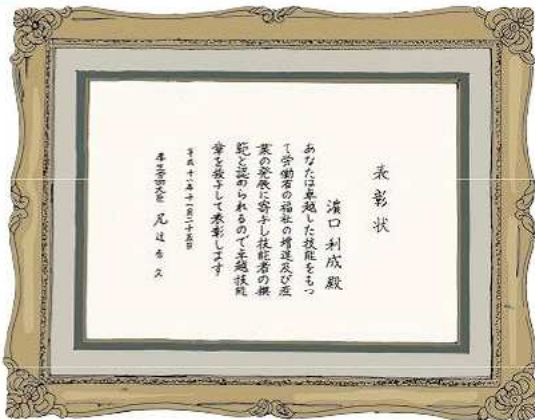 表彰状
濵口利成殿
あなたは卓越した技能をもっ
て労働者の福祉の増進及び産
業の発展に寄与し技能者の模
範と認められるので卓越技能
章を授与して表彰します
十一月二十五日
尾辻秀久